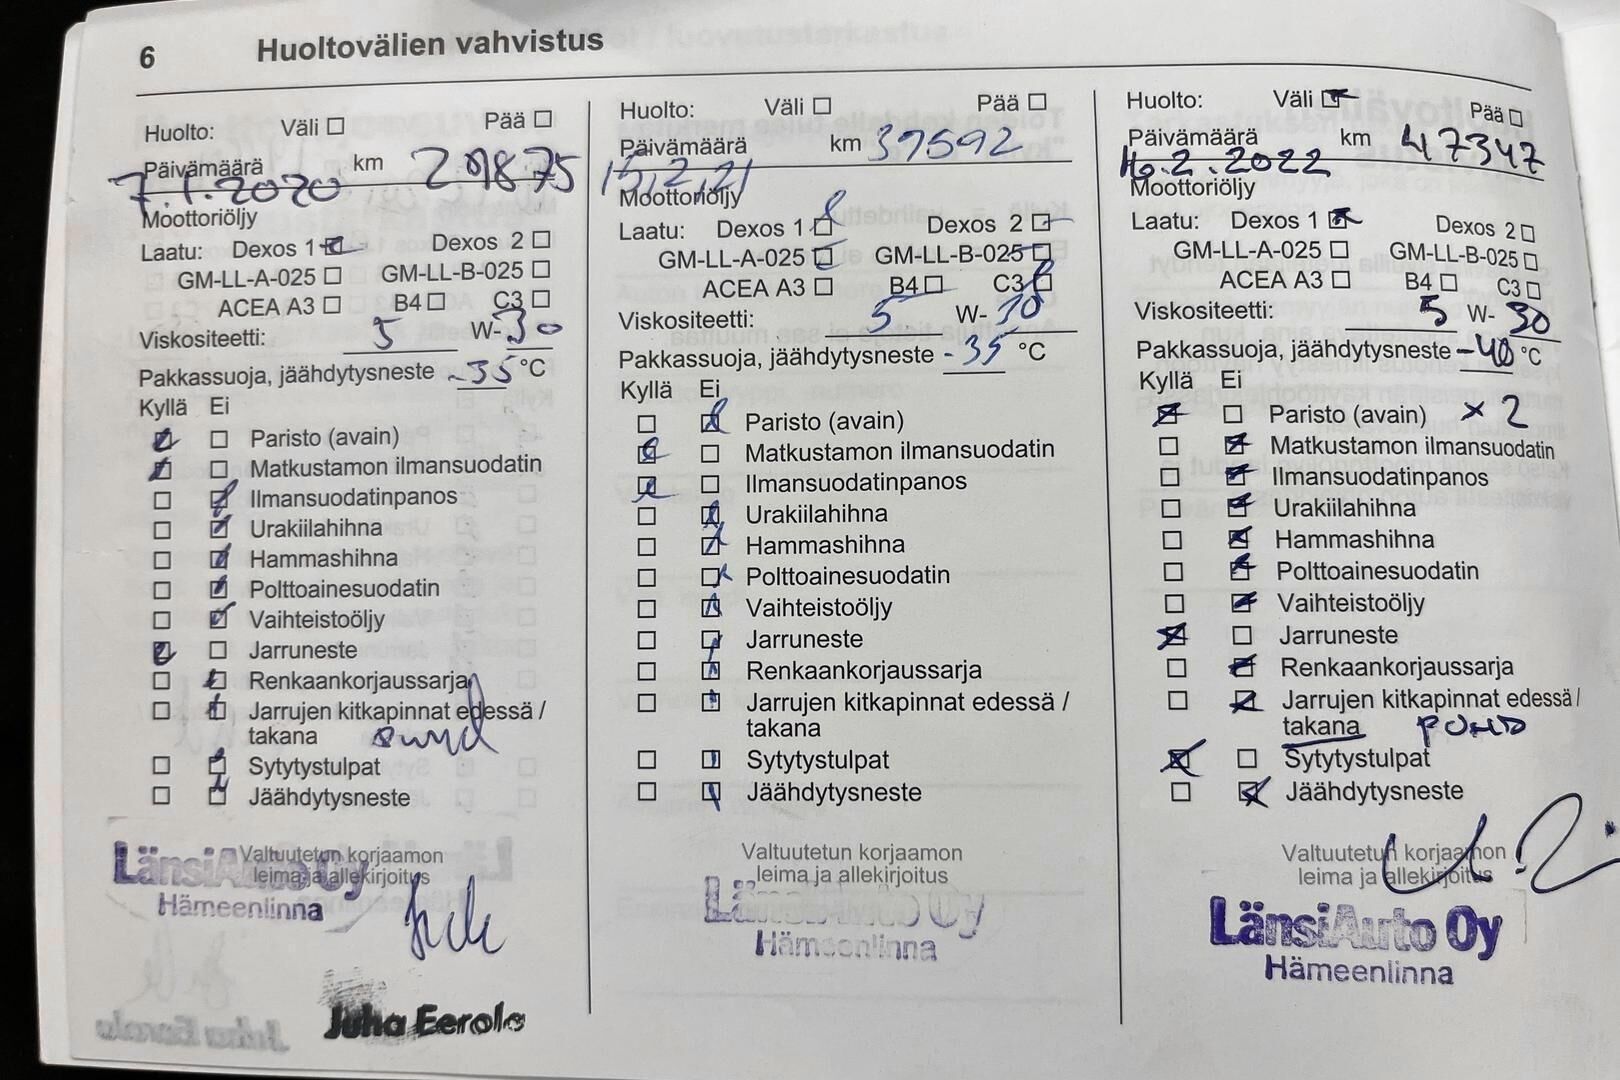 6 Huoltovälien vahvistus
Huolto: Väli Pää
Päivämäärä km 29875
7.1.2020
Moottoriöljy
Laatu: Dexos 1 Dexos 2
GM-LL-A-025 GM-LL-B-025
ACEA A3 B4 C3
Viskositeetti: 5 W-30
Pakkassuoja, jäähdytysneste -35 °C
Kyllä Ei
Paristo (avain)
Matkustamon ilmansuodatin
Ilmansuodatinpanos
Urakiilahihna
Hammashihna
Polttoainesuodatin
Vaihteistoöljy
Jarruneste
Renkaankorjaussarja
Jarrujen kitkapinnat edessä /
takana
Sytytystulpat
Jäähdytysneste
Valtuutetun korjaamon
leima ja allekirjoitus
LänsiAuto Oy
Hämeenlinna
Juha Eerola
Huolto: Väli Pää
Päivämäärä km 37592
15.2.21
Moottoriöljy
Laatu: Dexos 1 Dexos 2
GM-LL-A-025 GM-LL-B-025
ACEA A3 B4 C3
Viskositeetti: 5 W-30
Pakkassuoja, jäähdytysneste -35 °C
Kyllä Ei
Paristo (avain)
Matkustamon ilmansuodatin
Ilmansuodatinpanos
Urakiilahihna
Hammashihna
Polttoainesuodatin
Vaihteistoöljy
Jarruneste
Renkaankorjaussarja
Jarrujen kitkapinnat edessä /
takana
Sytytystulpat
Jäähdytysneste
Valtuutetun korjaamon
leima ja allekirjoitus
LänsiAuto Oy
Hämeenlinna
Huolto: Väli Pää
Päivämäärä km 47347
16.2.2022
Moottoriöljy
Laatu: Dexos 1 Dexos 2
GM-LL-A-025 GM-LL-B-025
ACEA A3 B4 C3
Viskositeetti: 5 W-30
Pakkassuoja, jäähdytysneste -40 °C
Kyllä Ei
Paristo (avain) x 2
Matkustamon ilmansuodatin
Ilmansuodatinpanos
Urakiilahihna
Hammashihna
Polttoainesuodatin
Vaihteistoöljy
Jarruneste
Renkaankorjaussarja
Jarrujen kitkapinnat edessä /
takana POHD
Sytytystulpat
Jäähdytysneste
Valtuutetun korjaamon
leima ja allekirjoitus
LänsiAuto Oy
Hämeenlinna